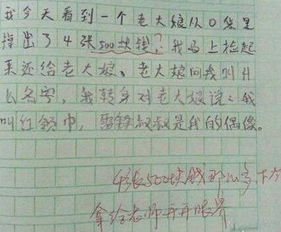 我今天看到一个老大娘从口袋里
掉出了4张500块钱？我马上捡起
来还给老大娘。老大娘问我叫什
么名字，我转身对老大娘说：我
叫红领巾，雷锋叔叔是我的偶像。
4张500块钱那么多，下次
拿给老师开开眼界